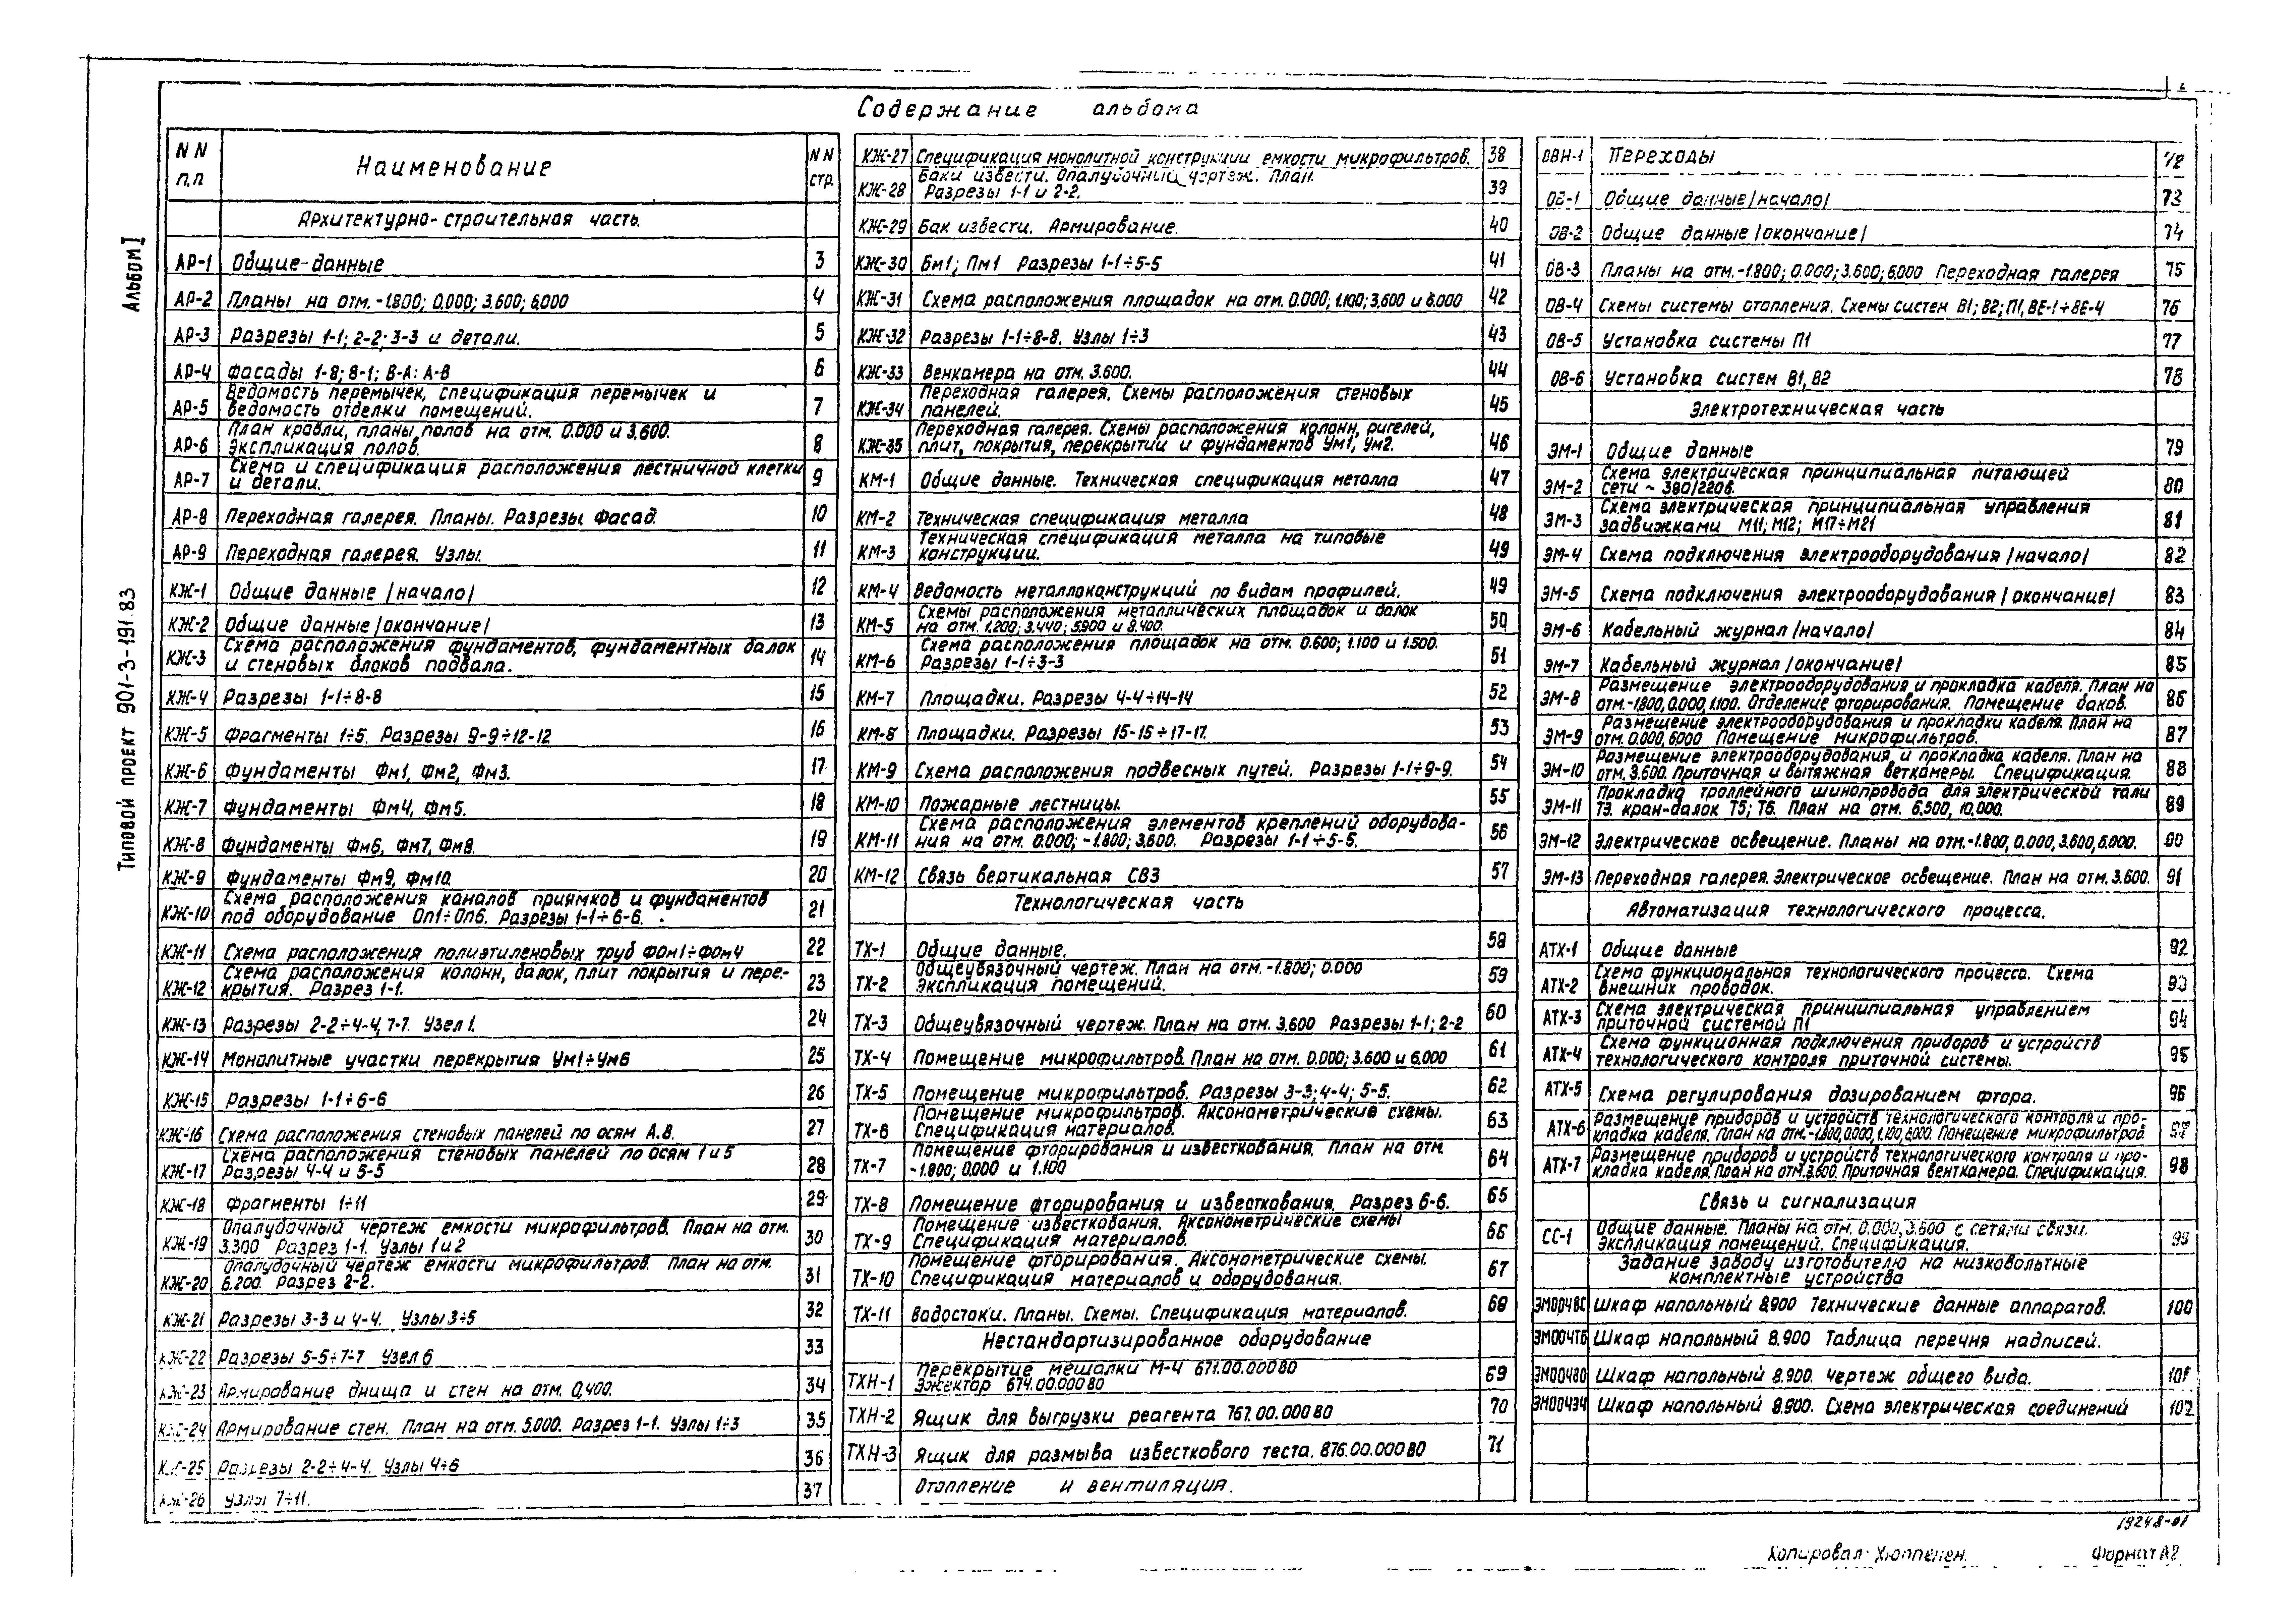 Содержание альбома
Альбом I
Типовой проект 901-3-191.83
NN п.п Наименование NN стр.
Архитектурно-строительная часть.
АР-1 Общие данные 3
АР-2 Планы на отм. -1.800; 0.000; 3.600; 6.000 4
АР-3 Разрезы 1-1; 2-2; 3-3 и детали. 5
АР-4 Фасады 1-8; 8-1; В-А; А-В 6
АР-5 Ведомость перемычек, спецификация перемычек и
ведомость отделки помещений. 7
АР-6 План кровли, планы полов на отм. 0.000 и 3.600.
Экспликация полов. 8
АР-7 Схема и спецификация расположения лестничной клетки
и детали. 9
АР-8 Переходная галерея. Планы. Разрезы. Фасад. 10
АР-9 Переходная галерея. Узлы. 11
КЖ-1 Общие данные /начало/ 12
КЖ-2 Общие данные /окончание/ 13
КЖ-3 Схема расположения фундаментов, фундаментных балок
и стеновых блоков подвала. 14
КЖ-4 Разрезы 1-1÷8-8 15
КЖ-5 Фрагменты 1÷5. Разрезы 9-9÷12-12 16
КЖ-6 Фундаменты Фм1, Фм2, Фм3. 17
КЖ-7 Фундаменты Фм4, Фм5. 18
КЖ-8 Фундаменты Фм6, Фм7, Фм8. 19
КЖ-9 Фундаменты Фм9, Фм10. 20
КЖ-10 Схема расположения каналов приямков и фундаментов
под оборудование Оп1÷Оп6. Разрезы 1-1÷6-6. 21
КЖ-11 Схема расположения полиэтиленовых труб Фом1÷Фом4 22
КЖ-12 Схема расположения колонн, балок, плит покрытия и пере-
крытия. Разрез 1-1. 23
КЖ-13 Разрезы 2-2÷4-4, 7-7. Узел 1. 24
КЖ-14 Монолитные участки перекрытия Ум1÷Ум6 25
КЖ-15 Разрезы 1-1÷6-6 26
КЖ-16 Схема расположения стеновых панелей по осям А.В. 27
КЖ-17 Схема расположения стеновых панелей по осям 1 и 5
Разрезы 4-4 и 5-5 28
КЖ-18 Фрагменты 1÷11 29
КЖ-19 Опалубочный чертеж емкости микрофильтров. План на отм.
3.300 Разрез 1-1. Узлы 1 и 2 30
КЖ-20 Опалубочный чертеж емкости микрофильтров. План на отм.
6.200. Разрез 2-2. 31
КЖ-21 Разрезы 3-3 и 4-4. Узлы 3÷5 32
КЖ-22 Разрезы 5-5÷7-7 Узел 6 33
КЖ-23 Армирование днища и стен на отм. 0,400. 34
КЖ-24 Армирование стен. План на отм. 5.000. Разрез 1-1. Узлы 1÷3 35
КЖ-25 Разрезы 2-2÷4-4. Узлы 4÷6 36
КЖ-26 Узлы 7÷11. 37
КЖ-27 Спецификация монолитной конструкции емкости микрофильтров. 38
КЖ-28 Баки извести. Опалубочный чертеж. План.
Разрезы 1-1 и 2-2. 39
КЖ-29 Бак извести. Армирование. 40
КЖ-30 Бм1; Пм1 Разрезы 1-1÷5-5 41
КЖ-31 Схема расположения площадок на отм. 0.000; 1.100; 3.600 и 6.000 42
КЖ-32 Разрезы 1-1÷8-8. Узлы 1÷3 43
КЖ-33 Венкамера на отм. 3.600. 44
КЖ-34 Переходная галерея. Схемы расположения стеновых
панелей. 45
КЖ-35 Переходная галерея. Схемы расположения колонн, ригелей,
плит, покрытия, перекрытий и фундаментов Ум1, Ум2. 46
КМ-1 Общие данные. Техническая спецификация металла 47
КМ-2 Техническая спецификация металла 48
КМ-3 Техническая спецификация металла на типовые
конструкции. 49
КМ-4 Ведомость металлоконструкций по видам профилей. 49
КМ-5 Схемы расположения металлических площадок и балок
на отм. 1.200; 3.440; 5.900 и 8.400. 50
КМ-6 Схема расположения площадок на отм. 0.600; 1.100 и 1.500.
Разрезы 1-1÷3-3 51
КМ-7 Площадки. Разрезы 4-4÷14-14 52
КМ-8 Площадки. Разрезы 15-15÷17-17. 53
КМ-9 Схема расположения подвесных путей. Разрезы 1-1÷9-9. 54
КМ-10 Пожарные лестницы. 55
КМ-11 Схема расположения элементов креплений оборудова-
ния на отм. 0.000; -1.800; 3.600. Разрезы 1-1÷5-5. 56
КМ-12 Связь вертикальная СВ3 57
Технологическая часть
ТХ-1 Общие данные. 58
ТХ-2 Общеувязочный чертеж. План на отм. -1.800; 0.000
Экспликация помещений. 59
ТХ-3 Общеувязочный чертеж. План на отм. 3.600 Разрезы 1-1; 2-2 60
ТХ-4 Помещение микрофильтров. План на отм. 0.000; 3.600 и 6.000 61
ТХ-5 Помещение микрофильтров. Разрезы 3-3; 4-4; 5-5. 62
ТХ-6 Помещение микрофильтров. Аксонометрические схемы.
Спецификация материалов. 63
ТХ-7 Помещение фторирования и известкования. План на отм.
-1.800; 0.000 и 1.100 64
ТХ-8 Помещение фторирования и известкования. Разрез 6-6. 65
ТХ-9 Помещение известкования. Аксонометрические схемы
Спецификация материалов. 66
ТХ-10 Помещение фторирования. Аксонометрические схемы.
Спецификация материалов и оборудования. 67
ТХ-11 Водостоки. Планы. Схемы. Спецификация материалов. 68
Нестандартизированное оборудование
ТХН-1 Перекрытие мешалки М-4 671.00.000 ВО
Эжектор 674.00.000 ВО 69
ТХН-2 Ящик для выгрузки реагента 767.00.000 ВО 70
ТХН-3 Ящик для размыва известкового теста. 876.00.000 ВО 71
Отопление и вентиляция.
ОВН-1 Переходы 72
ОВ-1 Общие данные /начало/ 73
ОВ-2 Общие данные /окончание/ 74
ОВ-3 Планы на отм. -1.800; 0.000; 3.600; 6.000 Переходная галерея 75
ОВ-4 Схемы системы отопления. Схемы систем В1; В2; П1, ВЕ-1÷ВЕ-4 76
ОВ-5 Установка системы П1 77
ОВ-6 Установка систем В1, В2 78
Электротехническая часть
ЭМ-1 Общие данные 79
ЭМ-2 Схема электрическая принципиальная питающей
сети ~ 380/220в. 80
ЭМ-3 Схема электрическая принципиальная управления
задвижками М11; М12; М17÷М21 81
ЭМ-4 Схема подключения электрооборудования /начало/ 82
ЭМ-5 Схема подключения электрооборудования /окончание/ 83
ЭМ-6 Кабельный журнал /начало/ 84
ЭМ-7 Кабельный журнал /окончание/ 85
ЭМ-8 Размещение электрооборудования и прокладка кабеля. План на
отм. -1.800, 0.000, 1.100. Отделение фторирования. Помещение баков. 86
ЭМ-9 Размещение электрооборудования и прокладки кабеля. План на
отм. 0.000, 6.000 Помещение микрофильтров. 87
ЭМ-10 Размещение электрооборудования и прокладка кабеля. План на
отм. 3.600. Приточная и вытяжная веткамеры. Спецификация. 88
ЭМ-11 Прокладка троллейного шинопровода для электрической тали
Т3. кран-балок Т5; Т6. План на отм. 6.500, 10.000. 89
ЭМ-12 Электрическое освещение. Планы на отм. -1.800, 0.000, 3.600, 6.000. 90
ЭМ-13 Переходная галерея. Электрическое освещение. План на отм. 3.600. 91
Автоматизация технологического процесса.
АТХ-1 Общие данные 92
АТХ-2 Схема функциональная технологического процесса. Схема
внешних проводок. 93
АТХ-3 Схема электрическая принципиальная управлением
приточной системой П1 94
АТХ-4 Схема функционная подключения приборов и устройств
технологического контроля приточной системы. 95
АТХ-5 Схема регулирования дозированием фтора. 96
АТХ-6 Размещение приборов и устройств технологического контроля и про-
кладка кабеля. План на отм. -1.800, 0.000, 1.100, 6.000. Помещение микрофильтров 97
АТХ-7 Размещение приборов и устройств технологического контроля и про-
кладка кабеля. План на отм. 3.600. Приточная венткамера. Спецификация. 98
Связь и сигнализация
СС-1 Общие данные. Планы на отм. 0.000, 3.600 с сетями связи.
Экспликация помещений. Спецификация. 99
Задание заводу изготовителю на низковольтные
комплектные устройства
Шкаф напольный 8.900 Технические данные аппаратов. 100
Шкаф напольный 8.900 Таблица перечня надписей.
Шкаф напольный 8.900. Чертеж общего вида. 101
Шкаф напольный 8.900. Схема электрическая соединений 102
19248-01
Копировал: Хюппенен. Формат А2